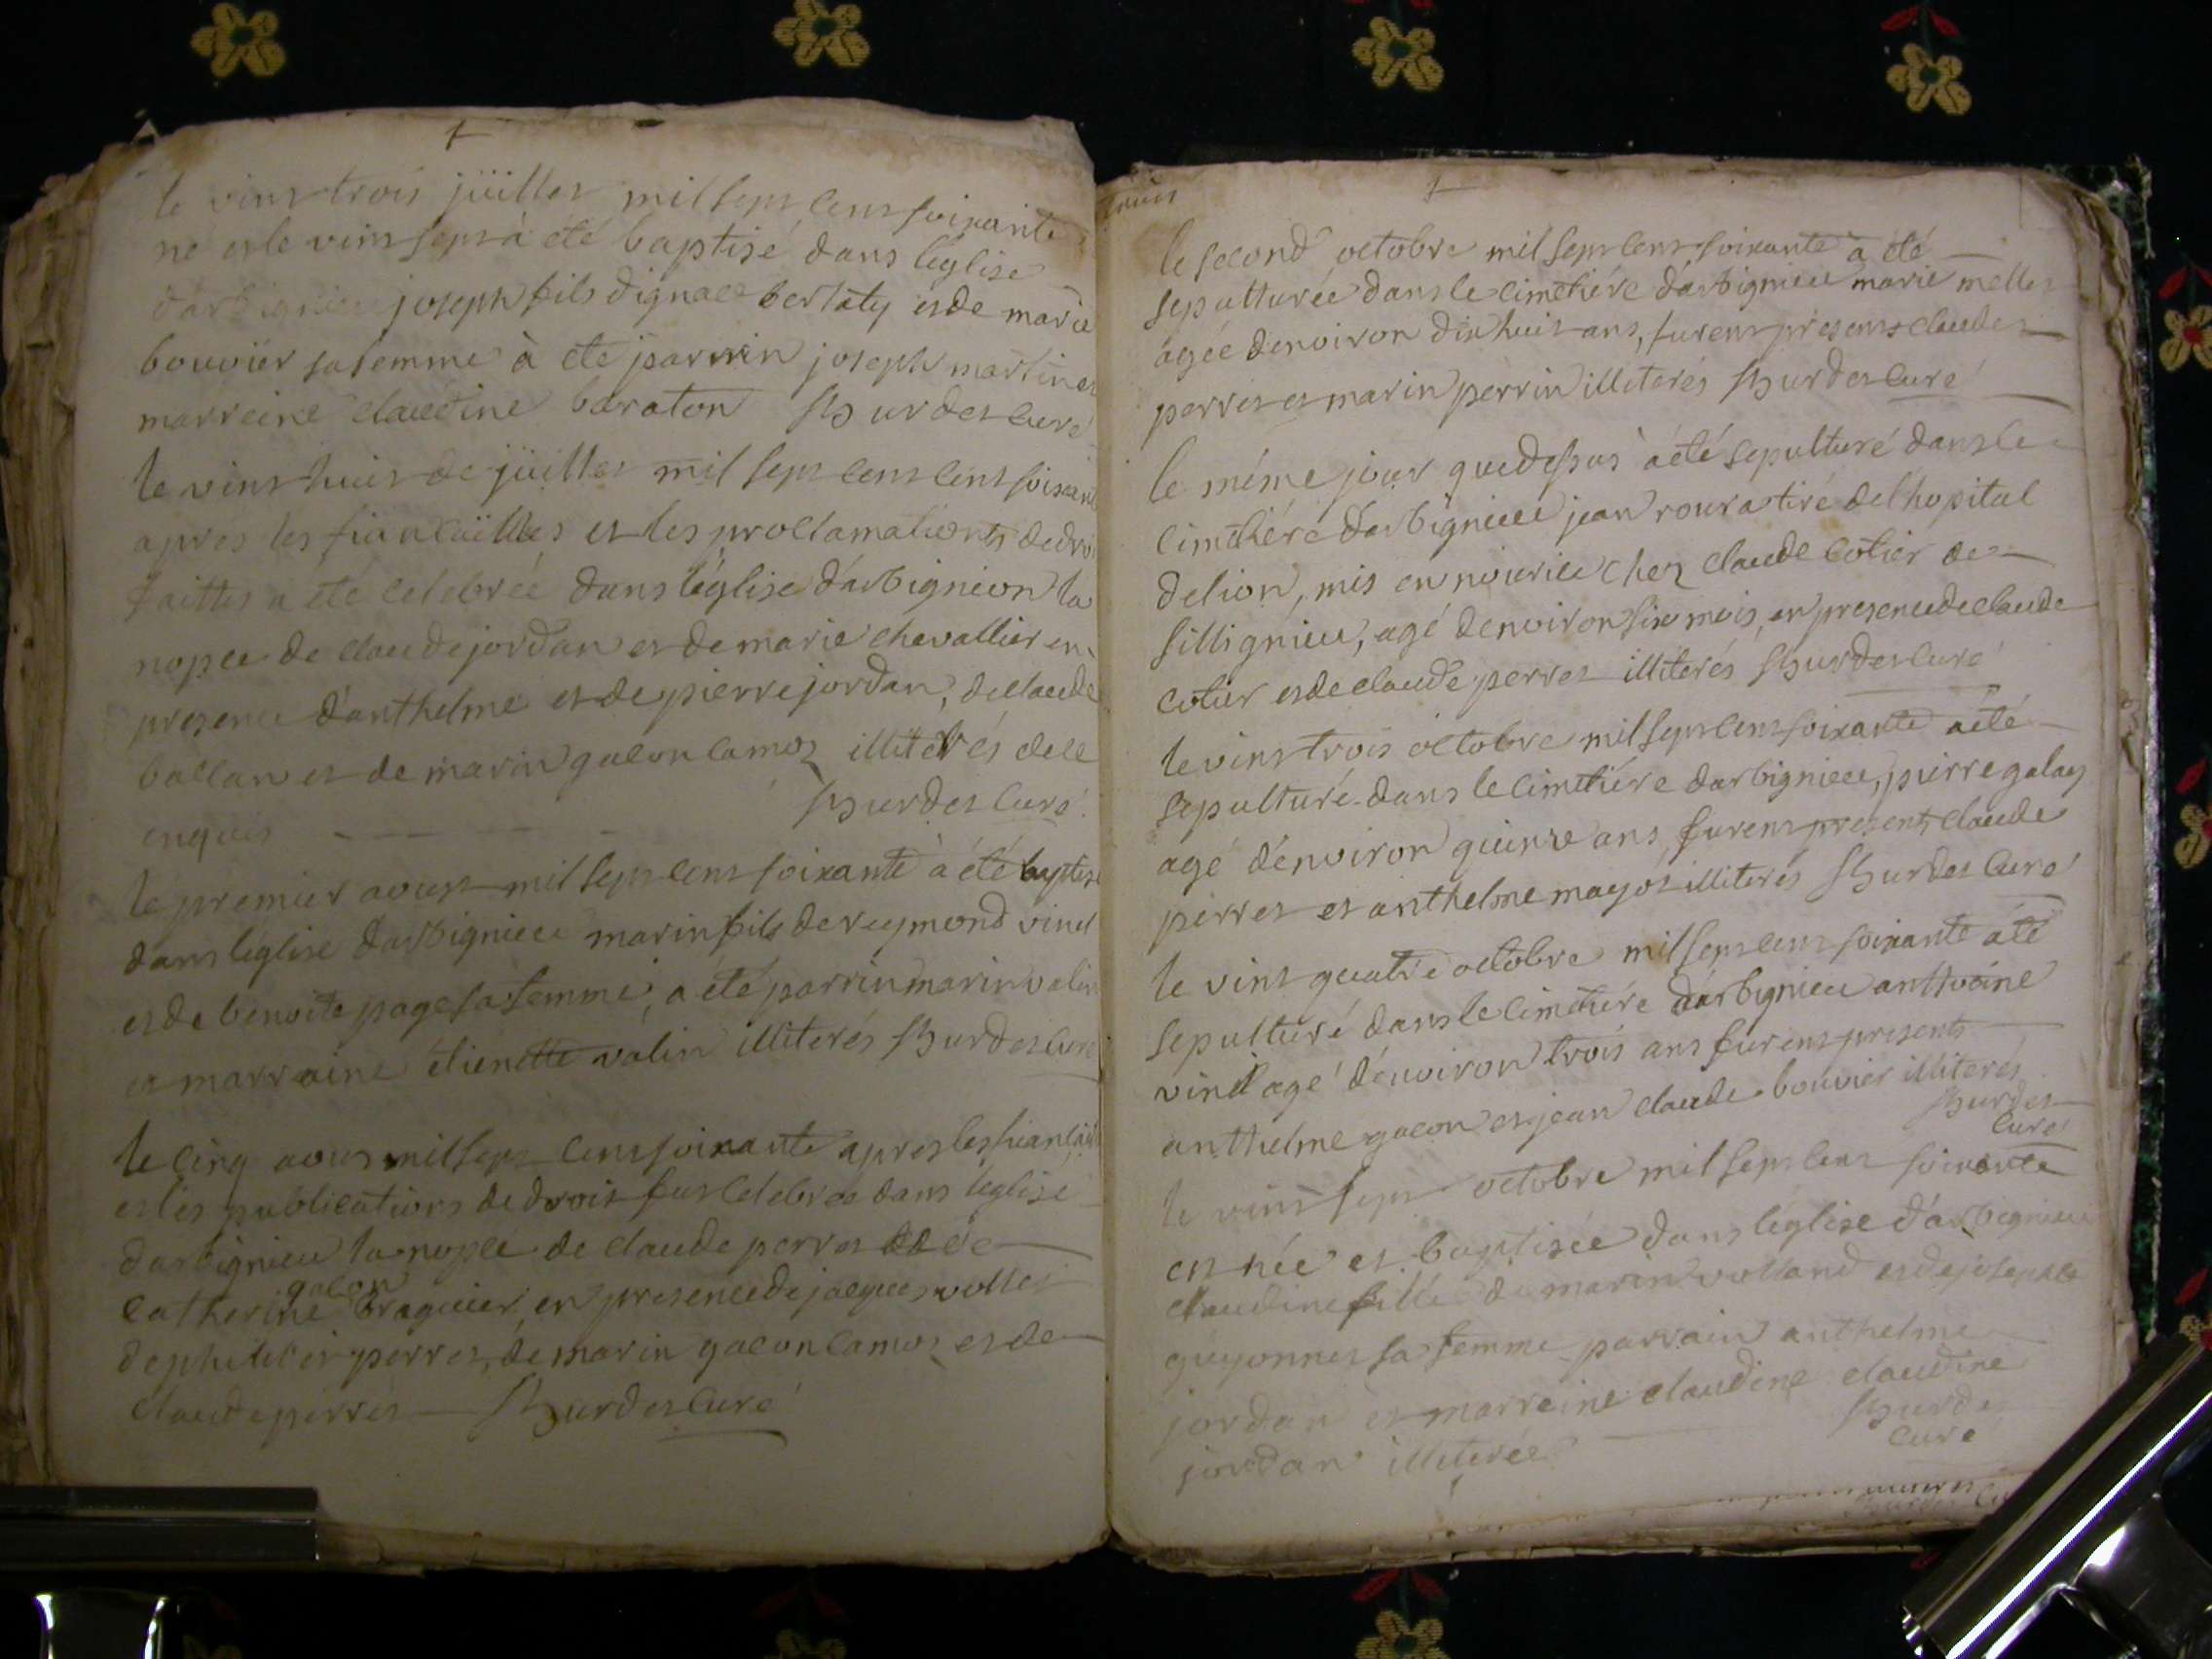 le vint trois jüillet mil sept cent soixante
né et le vint sept à été baptisé dans l'église
d'arbignieu joseph fils d'ignace berlioty et de marie
bouvier sa femme à eté parrin joseph martin et
marreine claudine baraton Hurdet curé
le vint huit de jüillet mil sept cent cent soixante
aprés les fiancailles et les proclamations de droit
faittes a été celebrée dans l'église d'arbignieu la
nopce de claude jordan et de marie chevallier en
presence d'anthelme et de pierre jordan, de claude
ballan et de marin gacon camoz illiterés de ce
enquis Hurdet curé
le premier aoust mil sept cent soixante à été baptisé
dans l'église d'arbignieu marin fils de reymond vincent
et de benoite page sa femme, a été parrin marin valin
et marraine étienette valin illiterés Hurdet curé
le cinq aout mil sept cent soixante apres les fiancail
et les publications de droit fut celebrée dans l'église
d'arbignieu la nopce de claude perret de
gacon
catherine braguier, en presence de jacques vollet
de philibert perret, de marin gacon camoz et de
claude perret Hurdet curé
le second octobre mil sept cent soixante à été
sepulturée dans le cimetiére d'arbignieu marie mellet
agée d'environ dix huit ans, furent presents claude
perret et marin perrin illiterés Hurdet curé
le méme jour que dessus à été sepulturé dans le
cimetiére d'arbignieu jean roura tiré de l'hopital
de lion, mis en nourice chez claude cotier de
sillignieu, agé d'environ six mois, en presence de claude
cotier et de claude perret illiterés Hurdet curé
le vint trois octobre mil sept cent soixante a été
sepulturé dans le cimetiére d'arbignieu, pierre galay
agé d'environ quinze ans, furent presents claude
perret et anthelme mayot illiterés Hurdet curé
le vint quatre octobre mil sept cent soixante a été
sepulturé dans le cimetiére d'arbignieu anthoine
vincent agé d'environ trois ans furent presents
anthelme gacon et jean claude bouvier illiterés
Hurdet
curé
le vint sept octobre mil sept cent soixante
est née et baptisée dans l'église d'arbignieu
claudine fille de marin volland et de josephte
guyonnet sa femme parrain anthelme
jordan et marreine claudine claudine
jordan illiterée Hurdet
curé